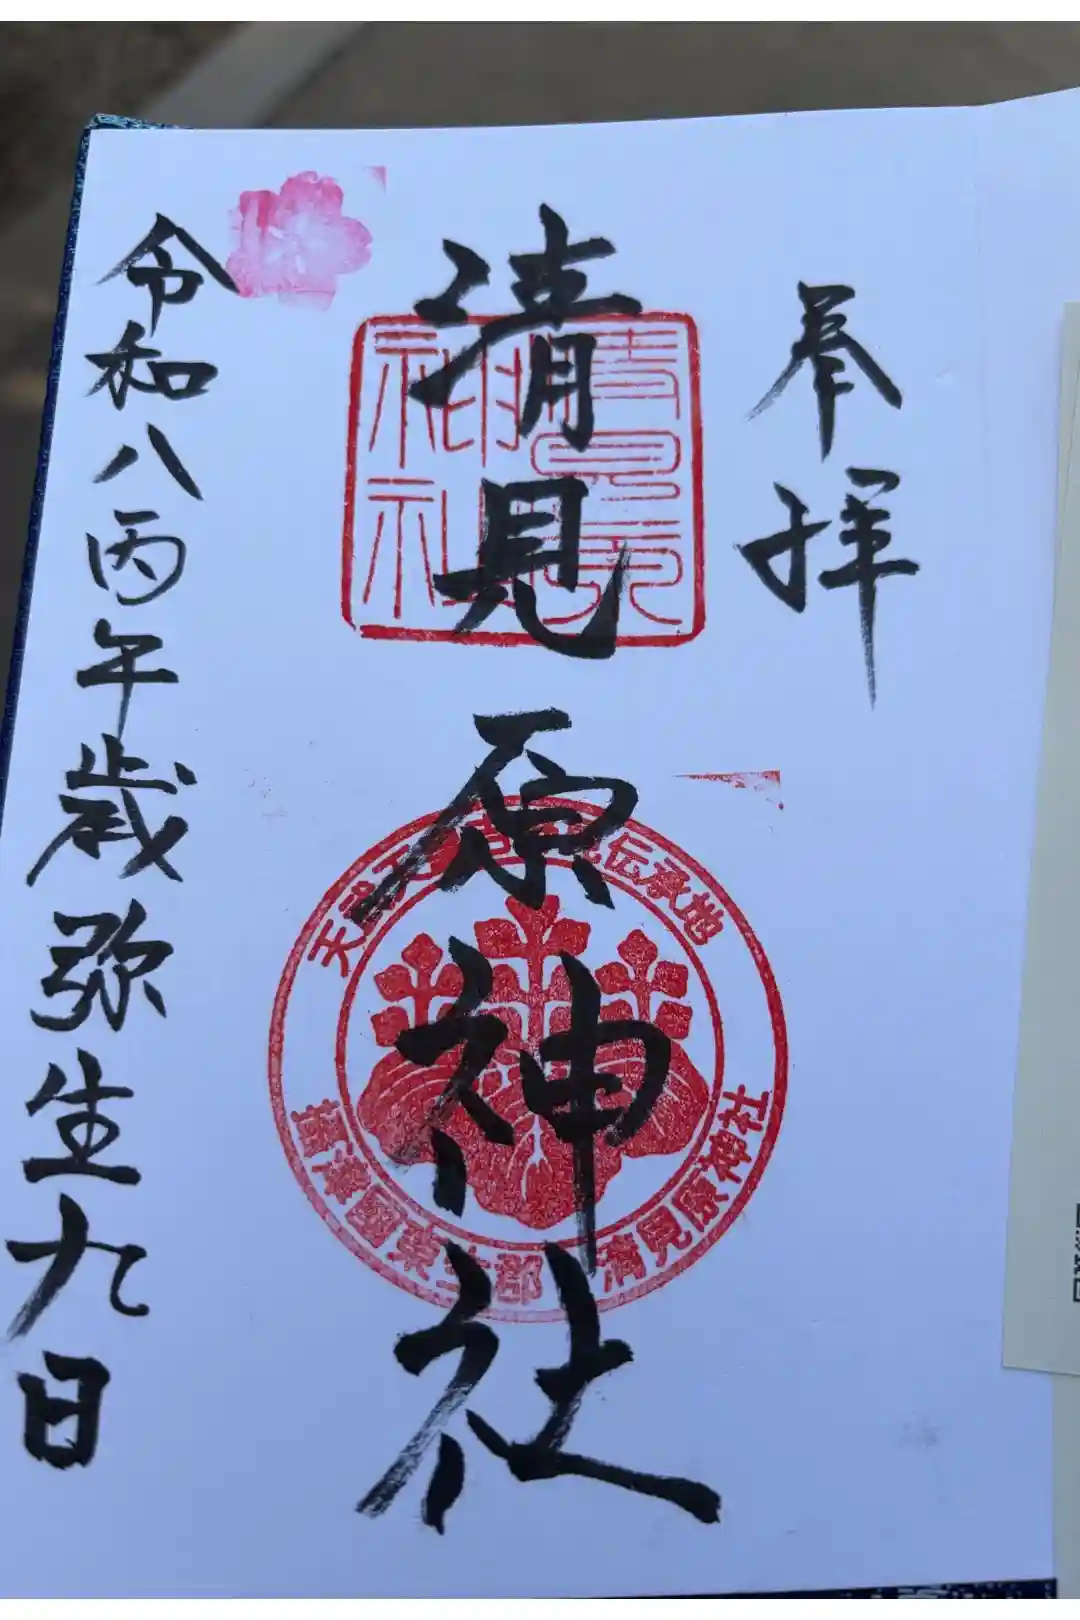 奉拝
清見原神社
清見原神社
天武天
伝承地
摂津國東生郡
清見原神社
令和八丙午歳弥生九日